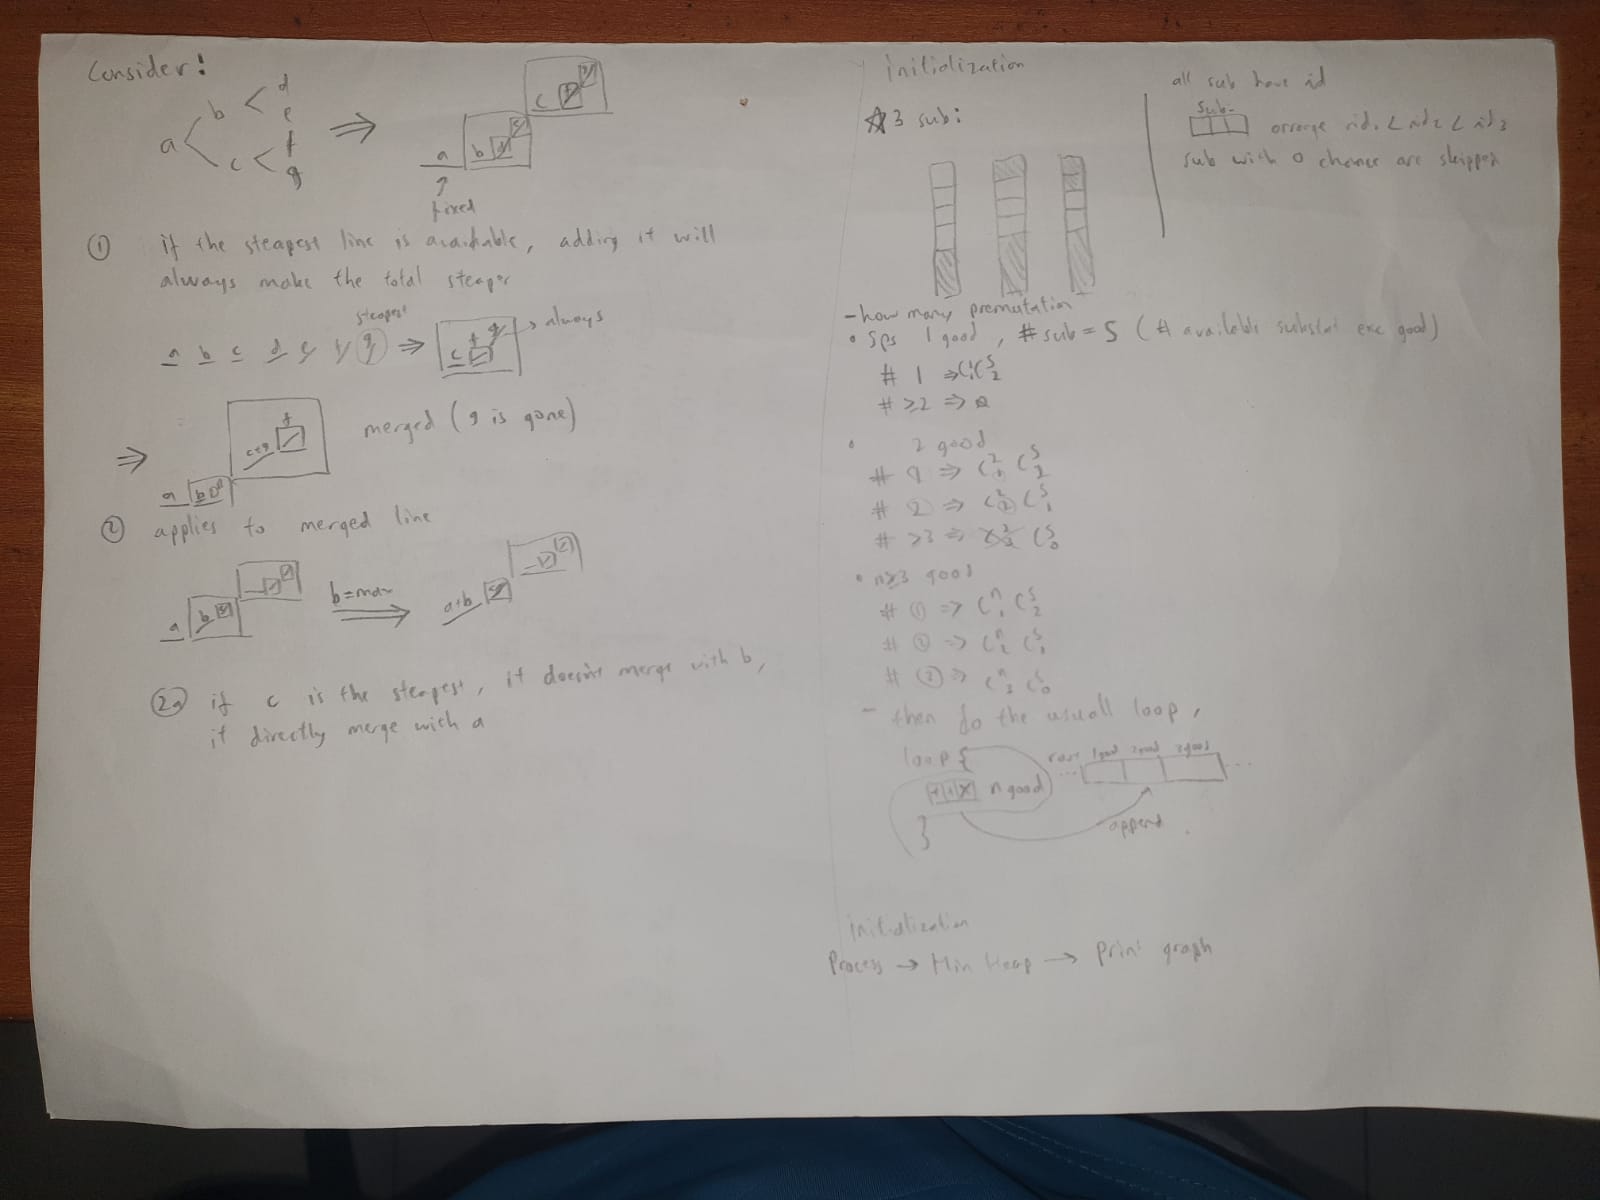 Consider!
a < b < d
e
c < f
g
⇒
a b d e c f g
fixed
① if the steapest line is available, adding it will
always make the total steaper
steapest
a b c d e f g ⇒ c f g → always
⇒ a b c+g f merged (g is gone)
② applies to merged line
a b b=max a+b
②a if c is the steapest, it doesn't merge with b,
it directly merge with a
initialization
☆3 sub:
all sub have id
sub-
arrange id₁ < id₂ < id₃
sub with 0 chance are skipped
- how many premutation
• Sps 1 good, # sub = S (# available substat exc good)
# 1 ⇒ C¹₁ C^S₂
# ≥2 ⇒ 0
• 2 good
# 1 ⇒ C²₁ C^S₂
# 2 ⇒ C²₂ C^S₁
# ≥3 ⇒ C^S₀
• n≥3 good
# ① ⇒ C^n₁ C^S₂
# ② ⇒ C^n₂ C^S₁
# ③ ⇒ C^n₃ C^S₀
- then do the usuall loop,
loop {
n good
}
1good 2good 3good
append
initialization
Process → Min Heap → Print graph